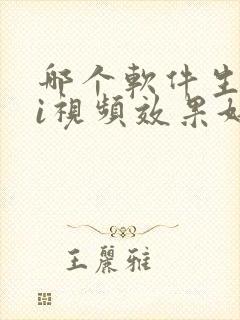 哪个軟件生
i視頻效果好
王麗雅